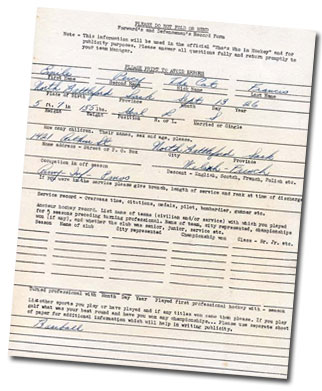 PLEASE DO NOT FOLD OR BEND
Forward's and Defenceman's Record Form
Note - This information will be used in the official "Who's Who in Hockey" and for
publicity purposes. Please answer all questions fully and return promptly to
your team manager.
PLEASE PRINT TO AVOID ERRORS
Emile Percy The Cat Francis
First Name Second Name Nick Name Last Name
North Battleford Sask Sept 13 26
Province
5 ft. 7 in 155 lbs. S
Height Weight Position R. or L. Married or Single
How many children. Their names, sex and age, please.
North Battleford Sask
Home address - Street or P. O. Box City Province
Descent - English, Scotch, French, Polish etc.
Occupation in off season
If you were in the service please give branch, length of service and rank at time of discharge
Service record - Overseas time, citations, medals, pilot, bombardier, gunner etc.
Amateur hockey record. List name of teams (civilian and/or service) with which you played
for 5 seasons preceding turning professional. Name of team, city represented, championships
won (if any), and whether the club was senior, junior, service etc.
Season Name of club City represented Championship won Class - Sr. Jr. etc.
Turned professional with Month Day Year Played first professional hockey with - season
List other sports you play or have played and if any titles won name them please. If you play
golf what was your best round and have you won any championships... Please use separate sheet
of paper for additional information which will help in writing publicity.
Baseball